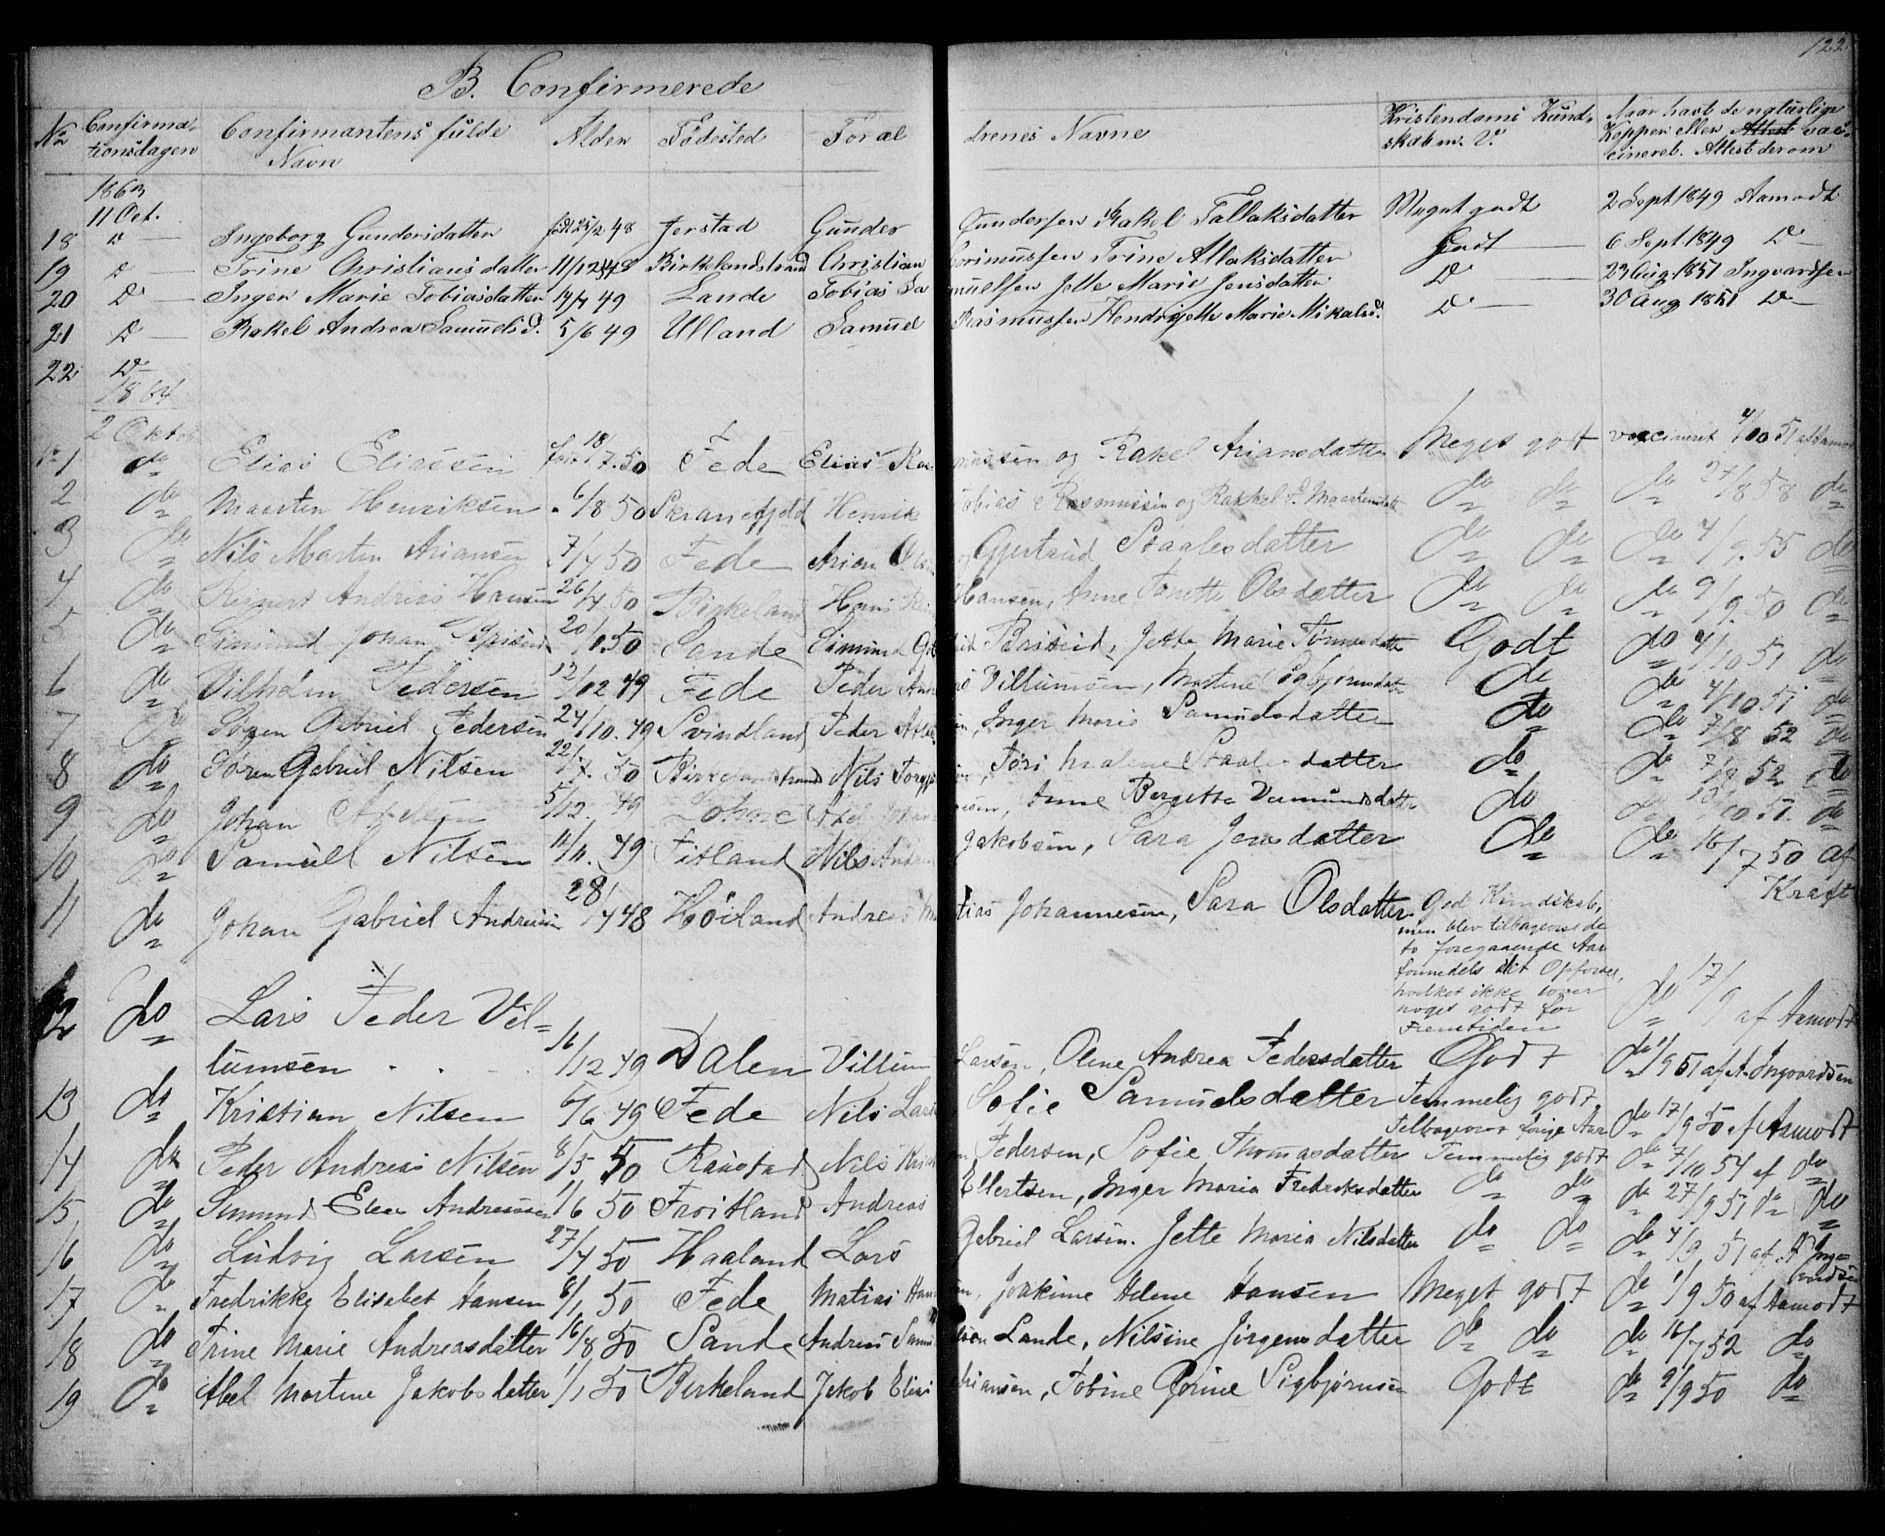 122
B. Confirmerede
No Confirmationsdagen Confirmantens fulde Navn Alder Fødested Forældrenes Navne Kristendoms Kundskab m. V. Naar havt de naturlige Kopper eller Attest vaccineret. Attest derom
1863
11 Oct.
18 D Ingeborg Gundersdatter født 25/2 48 Jerstad Gunder Gundersen Rakel Tallaksdatter Meget godt 2 Sept 1849 Aamodt
19 D Trine Christiansdatter 11/12 48 Birkelandstrand Christian Trine Atlaksdatter Godt 6 Sept 1849 D
20 D Inger Marie Tobiasdatter 14/7 49 Lande Tobias Jette Marie Jensdatter D 23 Aug 1851 Ingvardsen
21 D Rakel Andrea Samuelsd. 5/6 49 Ulland Samuel Rasmussen Hendrijette Marie Mikalsd. D 30 Aug 1851 D
22 D
1864
2 Oktob
No 1 do Elias Eliassen født 18/7.50 Fede Elias Rasmussen og Rakel Ariansdatter Meget godt vaccineret 4/10 51 af Aamodt
2 do Maarten Henriksen 6/8 50 Skranefjeld Henrik Tobias Rasmussen og Rakkel Maartensdatter do do do 27/8 58 do
3 do Nils Martin Ariansen 7/4 50 Fede Arian Olsen og Gjertrud Staalesdatter do do do 4/9.55 do
4 do Andreas Hansen 26/4 50 Birkeland Hans Hansen, Anne Tonette Olsdatter do do do 9/9.50 do
5 do Simund Johan 20/ .50 Sande Simund Jette Marie Tønnesdatter Godt do 4/10 51 do
6 do Vilhelm Pedersen 12/12 49 Fede Peder Andreas Villumsen, Martine Sigbjørnsdatter do do 4/10 51 do
7 do Søren Gabriel Pedersen 24/10.49 Svindland Peder Inger Maria Samuelsdatter do do 7/8 52 do
8 do Søren Gabriel Nilsen 22/ 50 Birkelandstrand Nils Malene Staalesdatter do do 7/ 52 do
9 do Johan 5/12.49 Anne Bergitte Vemundsdatter do do /10 51. do
10 do Samuel Nilsen 11/11.49 Fitland Nils Andreas Jakobsen, Sara Jensdatter do do 16/7 50 af Kraft
11 do Johan Gabriel Andreasen 28/4 48 Høiland Andreas Matias Johannesen, Sara Olsdatter God Kundskab,
men blev tilbagevist de
to foregaaende Aar
formedels sit Opførsel,
hvilket ikke lover
noget godt for
Fremtiden do 17/9 af Aamodt
12 do Lars Peder Vil=
lumsen 16/12 49 Dalen Villum Larsen, Olene Andrea Pedersdatter Godt do 1/9 51 af A. Ingvardsen
13 do Kristian Nilsen 6/6 49 Fede Nils Larsen Sofie Samuelsdatter Temmelig godt, Tilbagevist forige Aar do 17/9 50 af Aamodt
14 do Peder Andreas Nilsen 8/5 50 Raustad Nils Pedersen, Sofie Thomasdatter Temmelig godt do 7/10 54 af do
15 do Simund Elias Andreassen 1/6 50 Froitland Andreas Ellertsen, Inger Maria Fredriksdatter do do do 27/9 51 do do
16 do Ludvig Larsen 27/4 50 Haaland Lars Gabriel Larsen. Jette Maria Nilsdatter do do do 4/9 51 af A Ingvardsen
17 do Fredrikke Elisabet Hansen 8/1 50 Fede Matias Hansen, Joakime Helene Hansen Meget godt do 1/9 50 af Aamodt
18 do Trine Marie Andreasdatter 16/8 50 Sande Andreas Samuelson Lande, Nilsine Jørgensdatter do do do 16/7 52 do
19 do Abel Martine Jakobsdatter 1/1 50 Birkeland Jakob Elias Tobine Gorine Sigbjørnsen Godt do 9/9 50 do